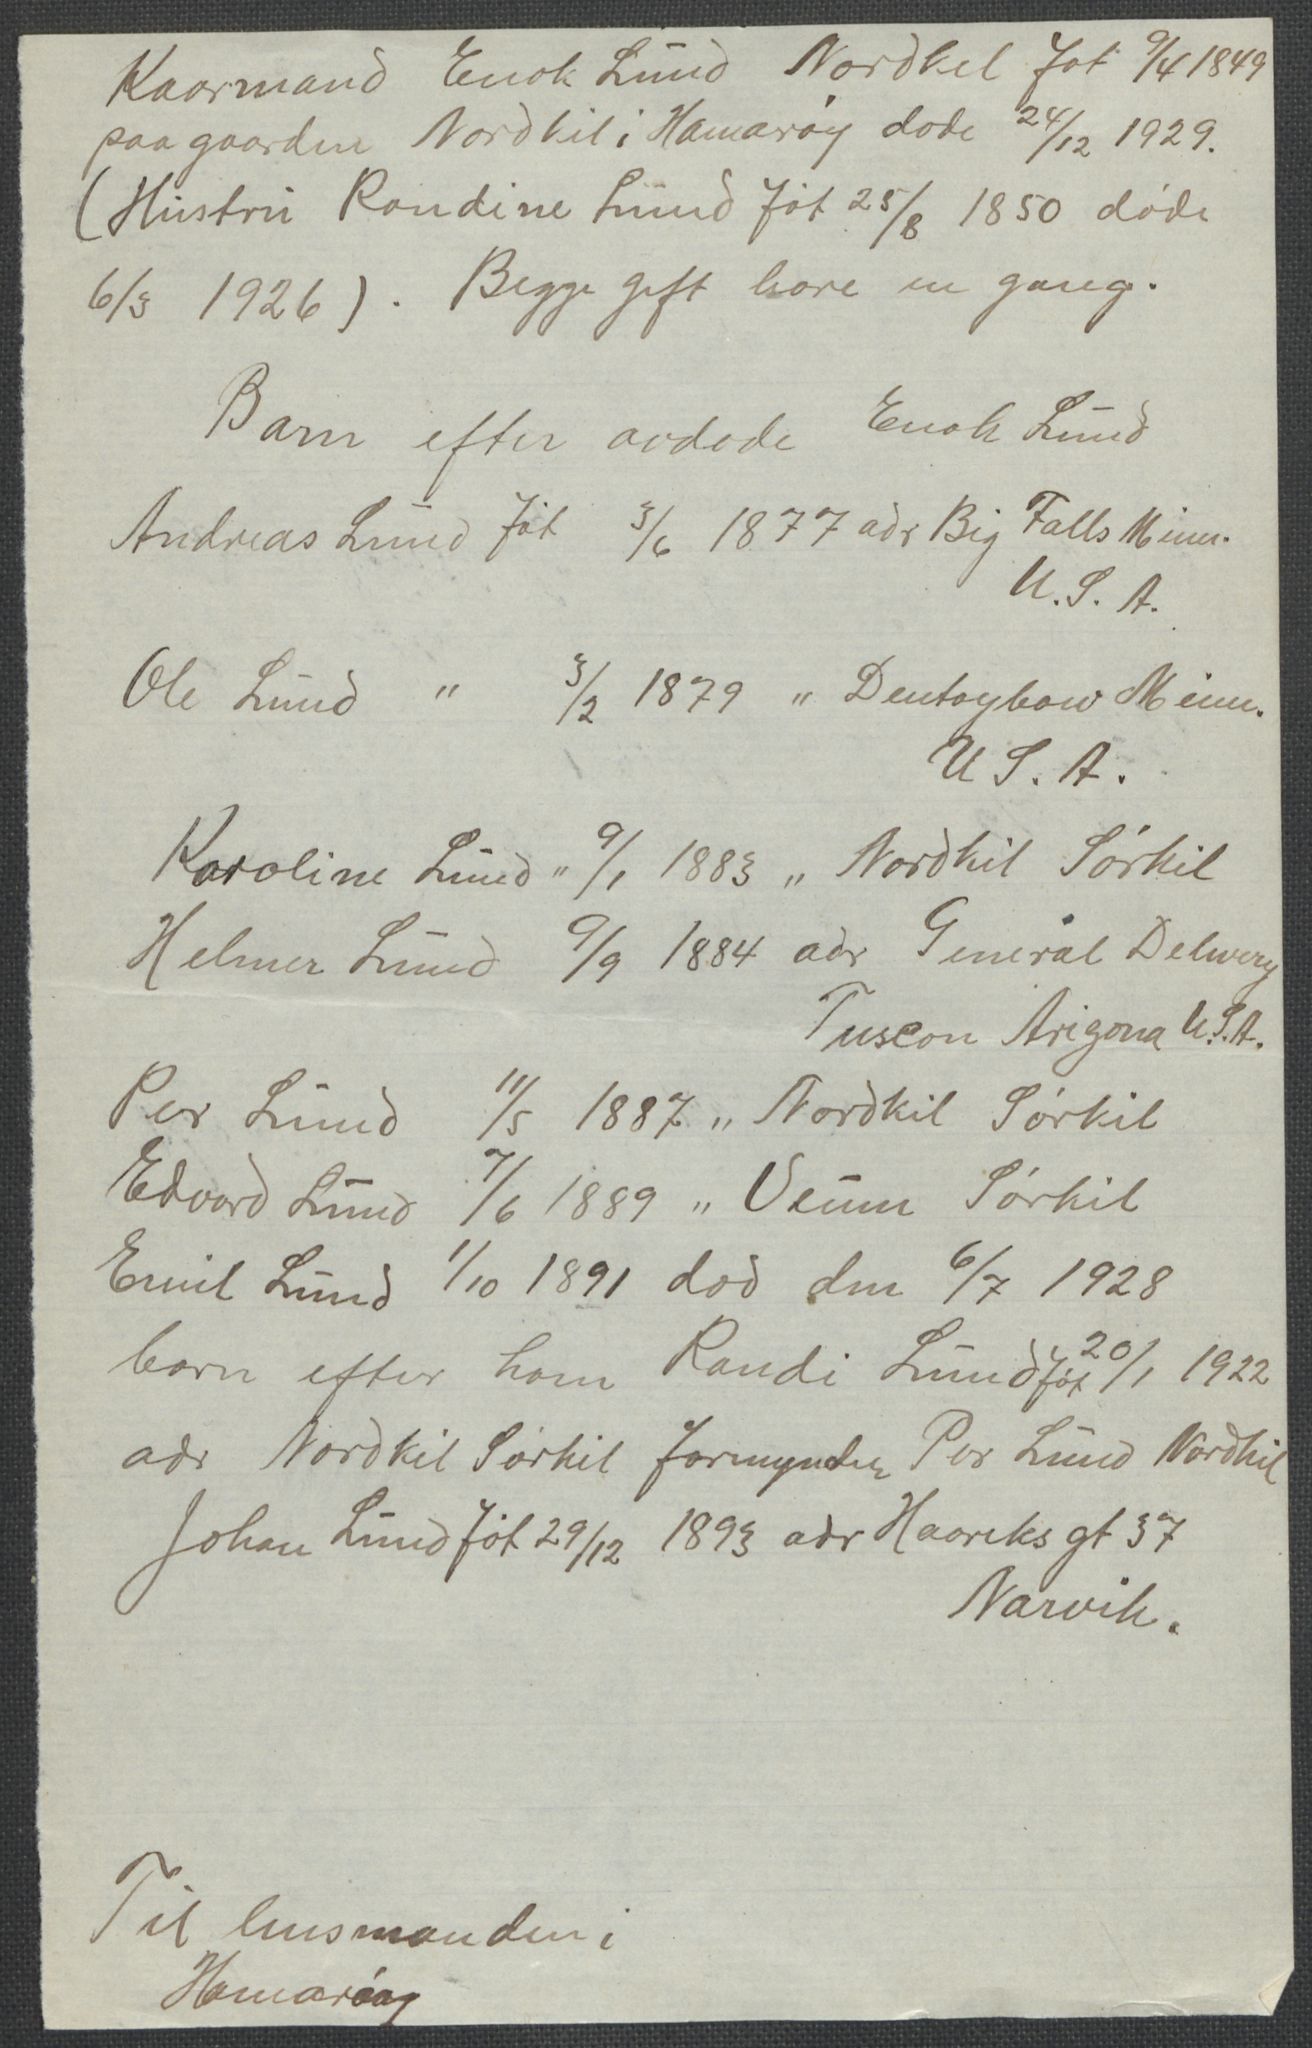 Kaarmand Enok Lund Nordkil föt 9/4 1849
paa gaarden Nordkil i Hamarøy døde 24/12 1929.
(Hustru Randine Lund föt 25/8 1850 døde
6/3 1926). Begge gift bare en gang.
Barn efter avdøde Enok Lund
Andreas Lund föt 3/6 1877 adr Big Falls Minn.
U.S.A.
Ole Lund " 3/2 1879 " Dentaybow Minn.
U S. A.
Karoline Lund " 9/1 1883 " Nordkil Sørkil
Helmer Lund 9/9 1884 adr General Delwery
Tuscon Arigona U.S.A.
Per Lund 11/5 1887 " Nordkil Sørkil
Edvard Lund 7/6 1889 " Sørkil
Emil Lund 1/10 1891 død den 6/7 1928
barn efter ham Randi Lund föt 20/1 1922
adr Nordkil Sørkil formynder Per Lund Nordkil
Johan Lund föt 29/12 1893 adr Haareks gt 37
Narvik.
Til lensmanden i
Hamarøy